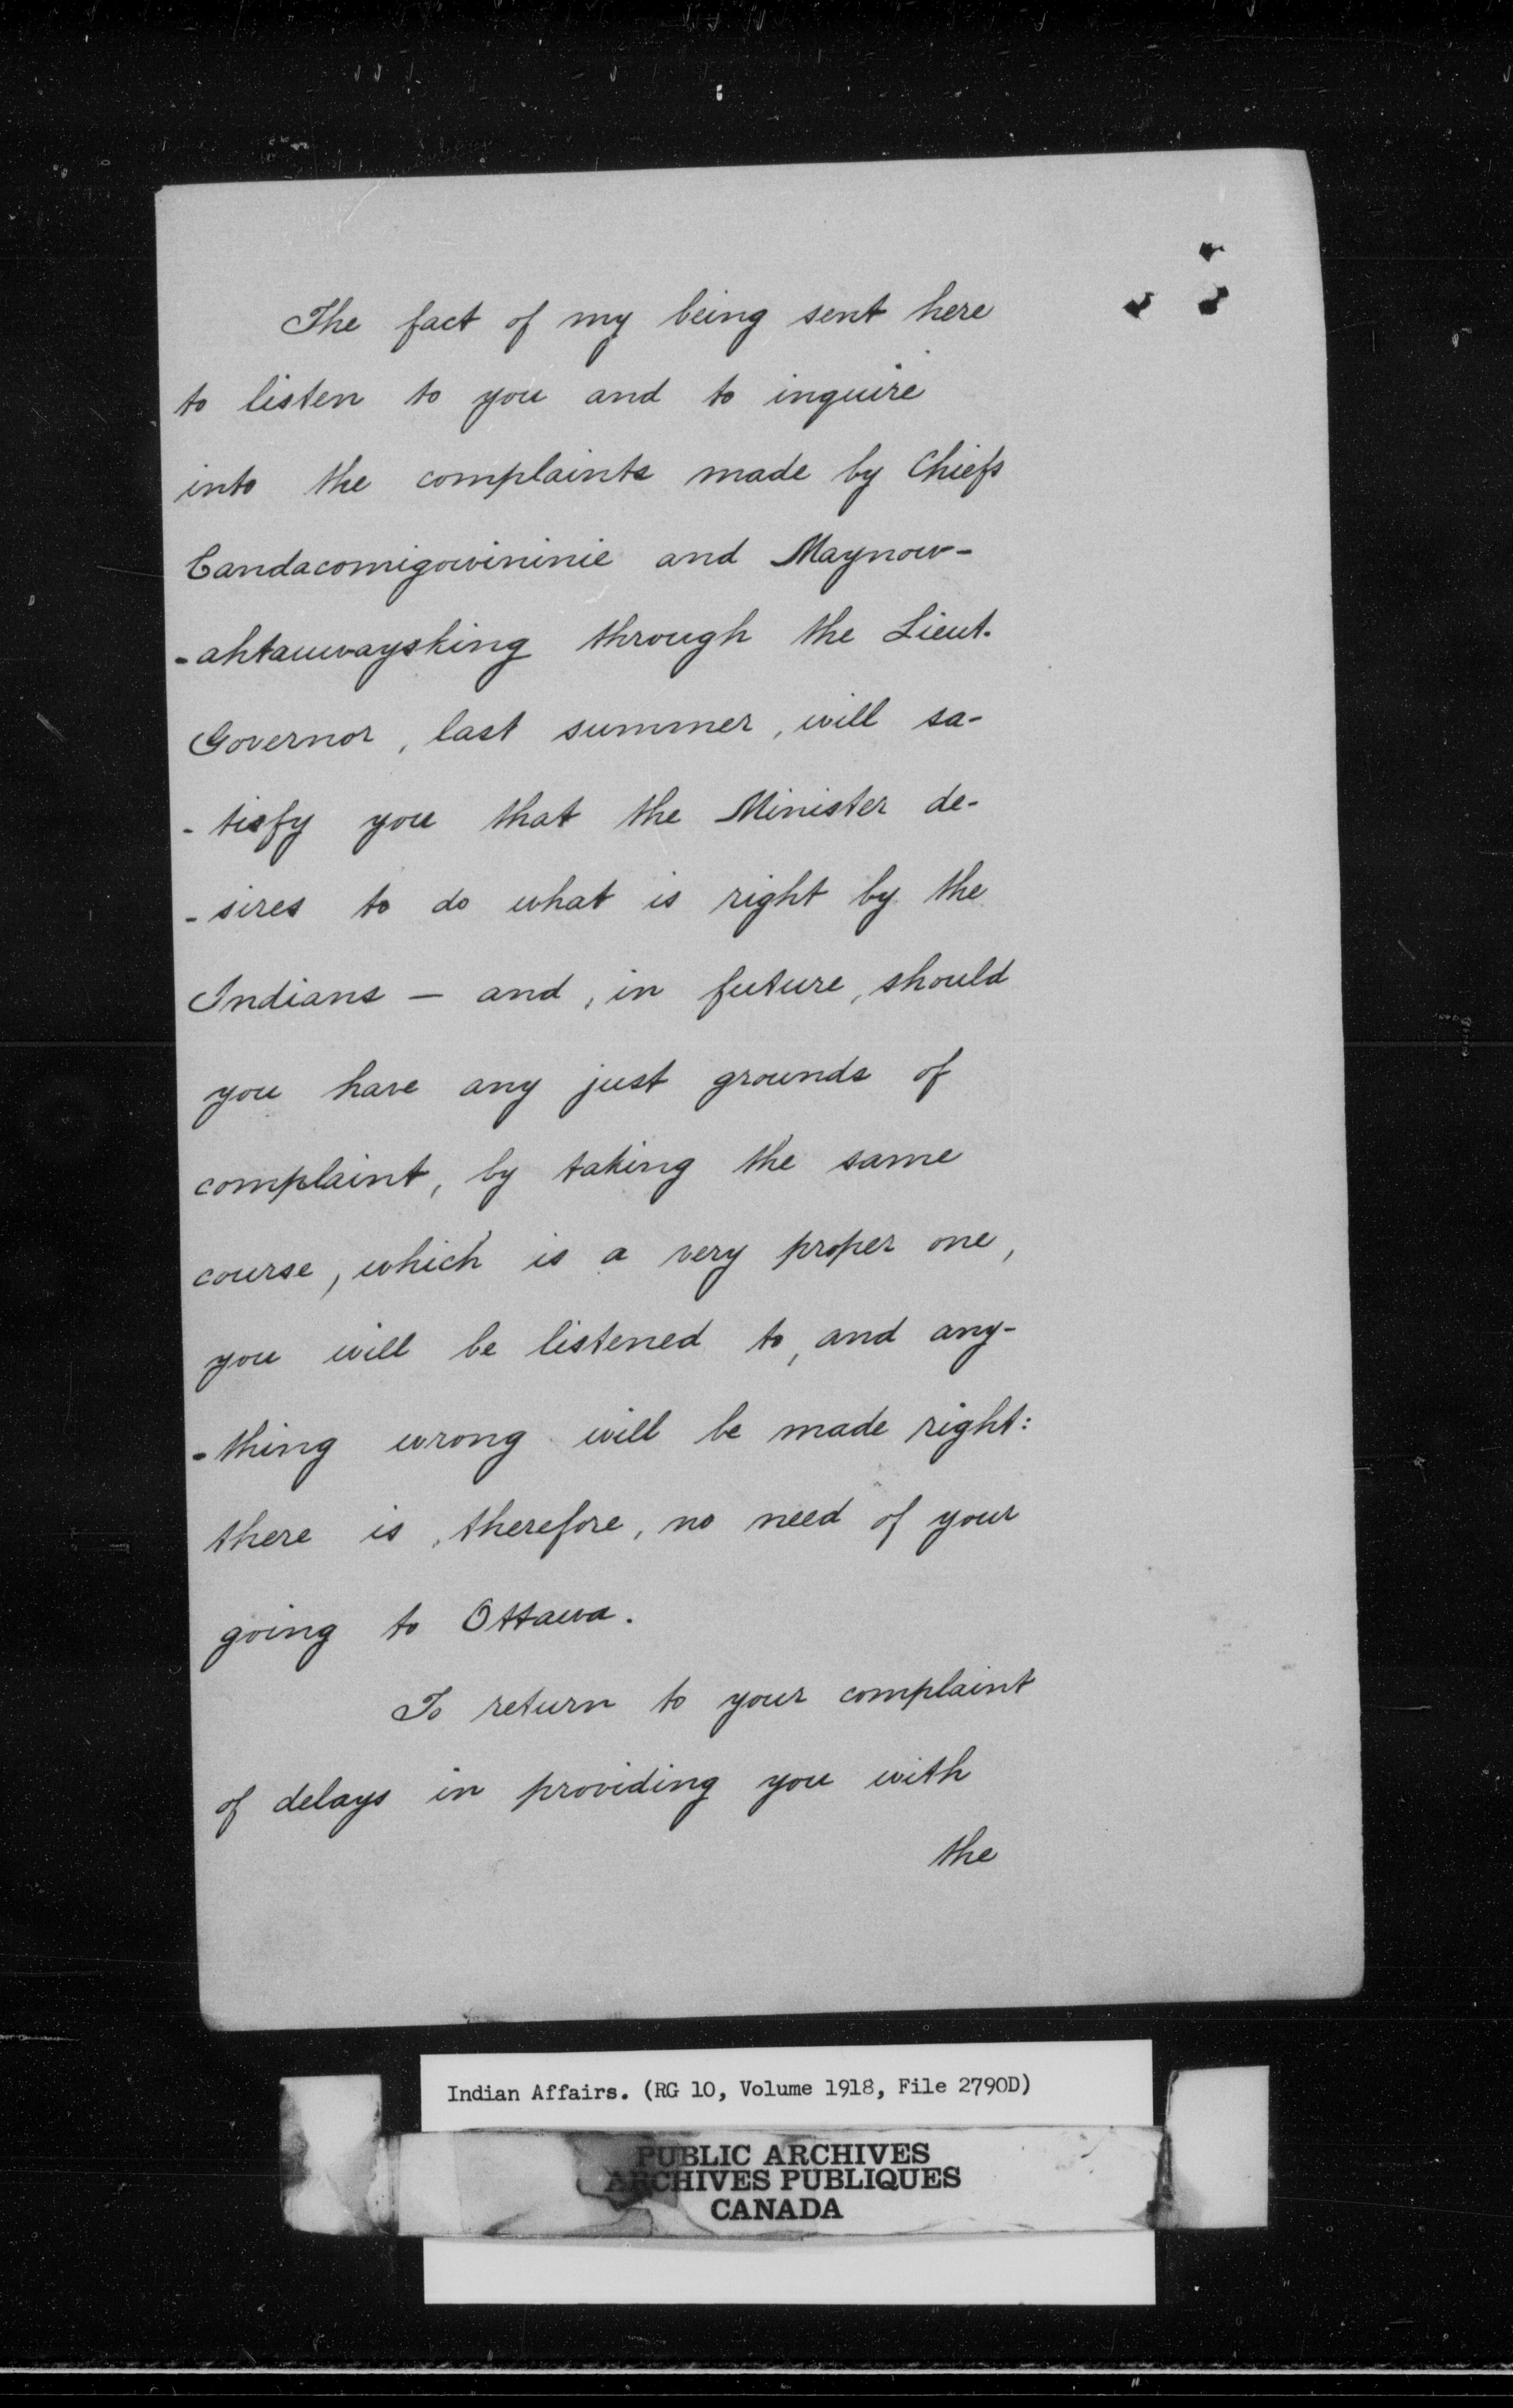 The fact of my being sent here
to listen to you and to inquire
into the complaints made by Chiefs
Candacomigowininie and Maynow-
-ahtauwaysking through the Lieut.
Governor, last summer, will sa-
-tisfy you that the Minister de-
-sires to do what is right by the
Indians — and, in future, should
you have any just grounds of
complaint, by taking the same
course, which is a very proper one,
you will be listened to, and any-
-thing wrong will be made right:
there is, therefore, no need of your
going to Ottawa.
To return to your complaint
of delays in providing you with
the
Indian Affairs. (RG 10, Volume 1918, File 2790D)
PUBLIC ARCHIVES
ARCHIVES PUBLIQUES
CANADA